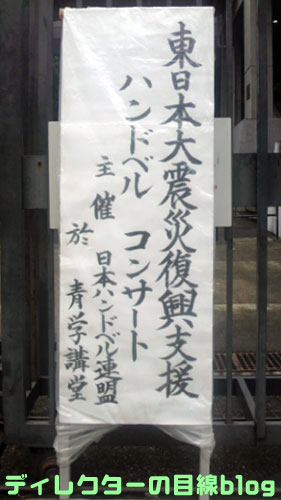 東日本大震災復興支援
ハンドベル コンサート
主催 日本ハンドベル連盟
於 青学講堂
ディレクターの目線blog